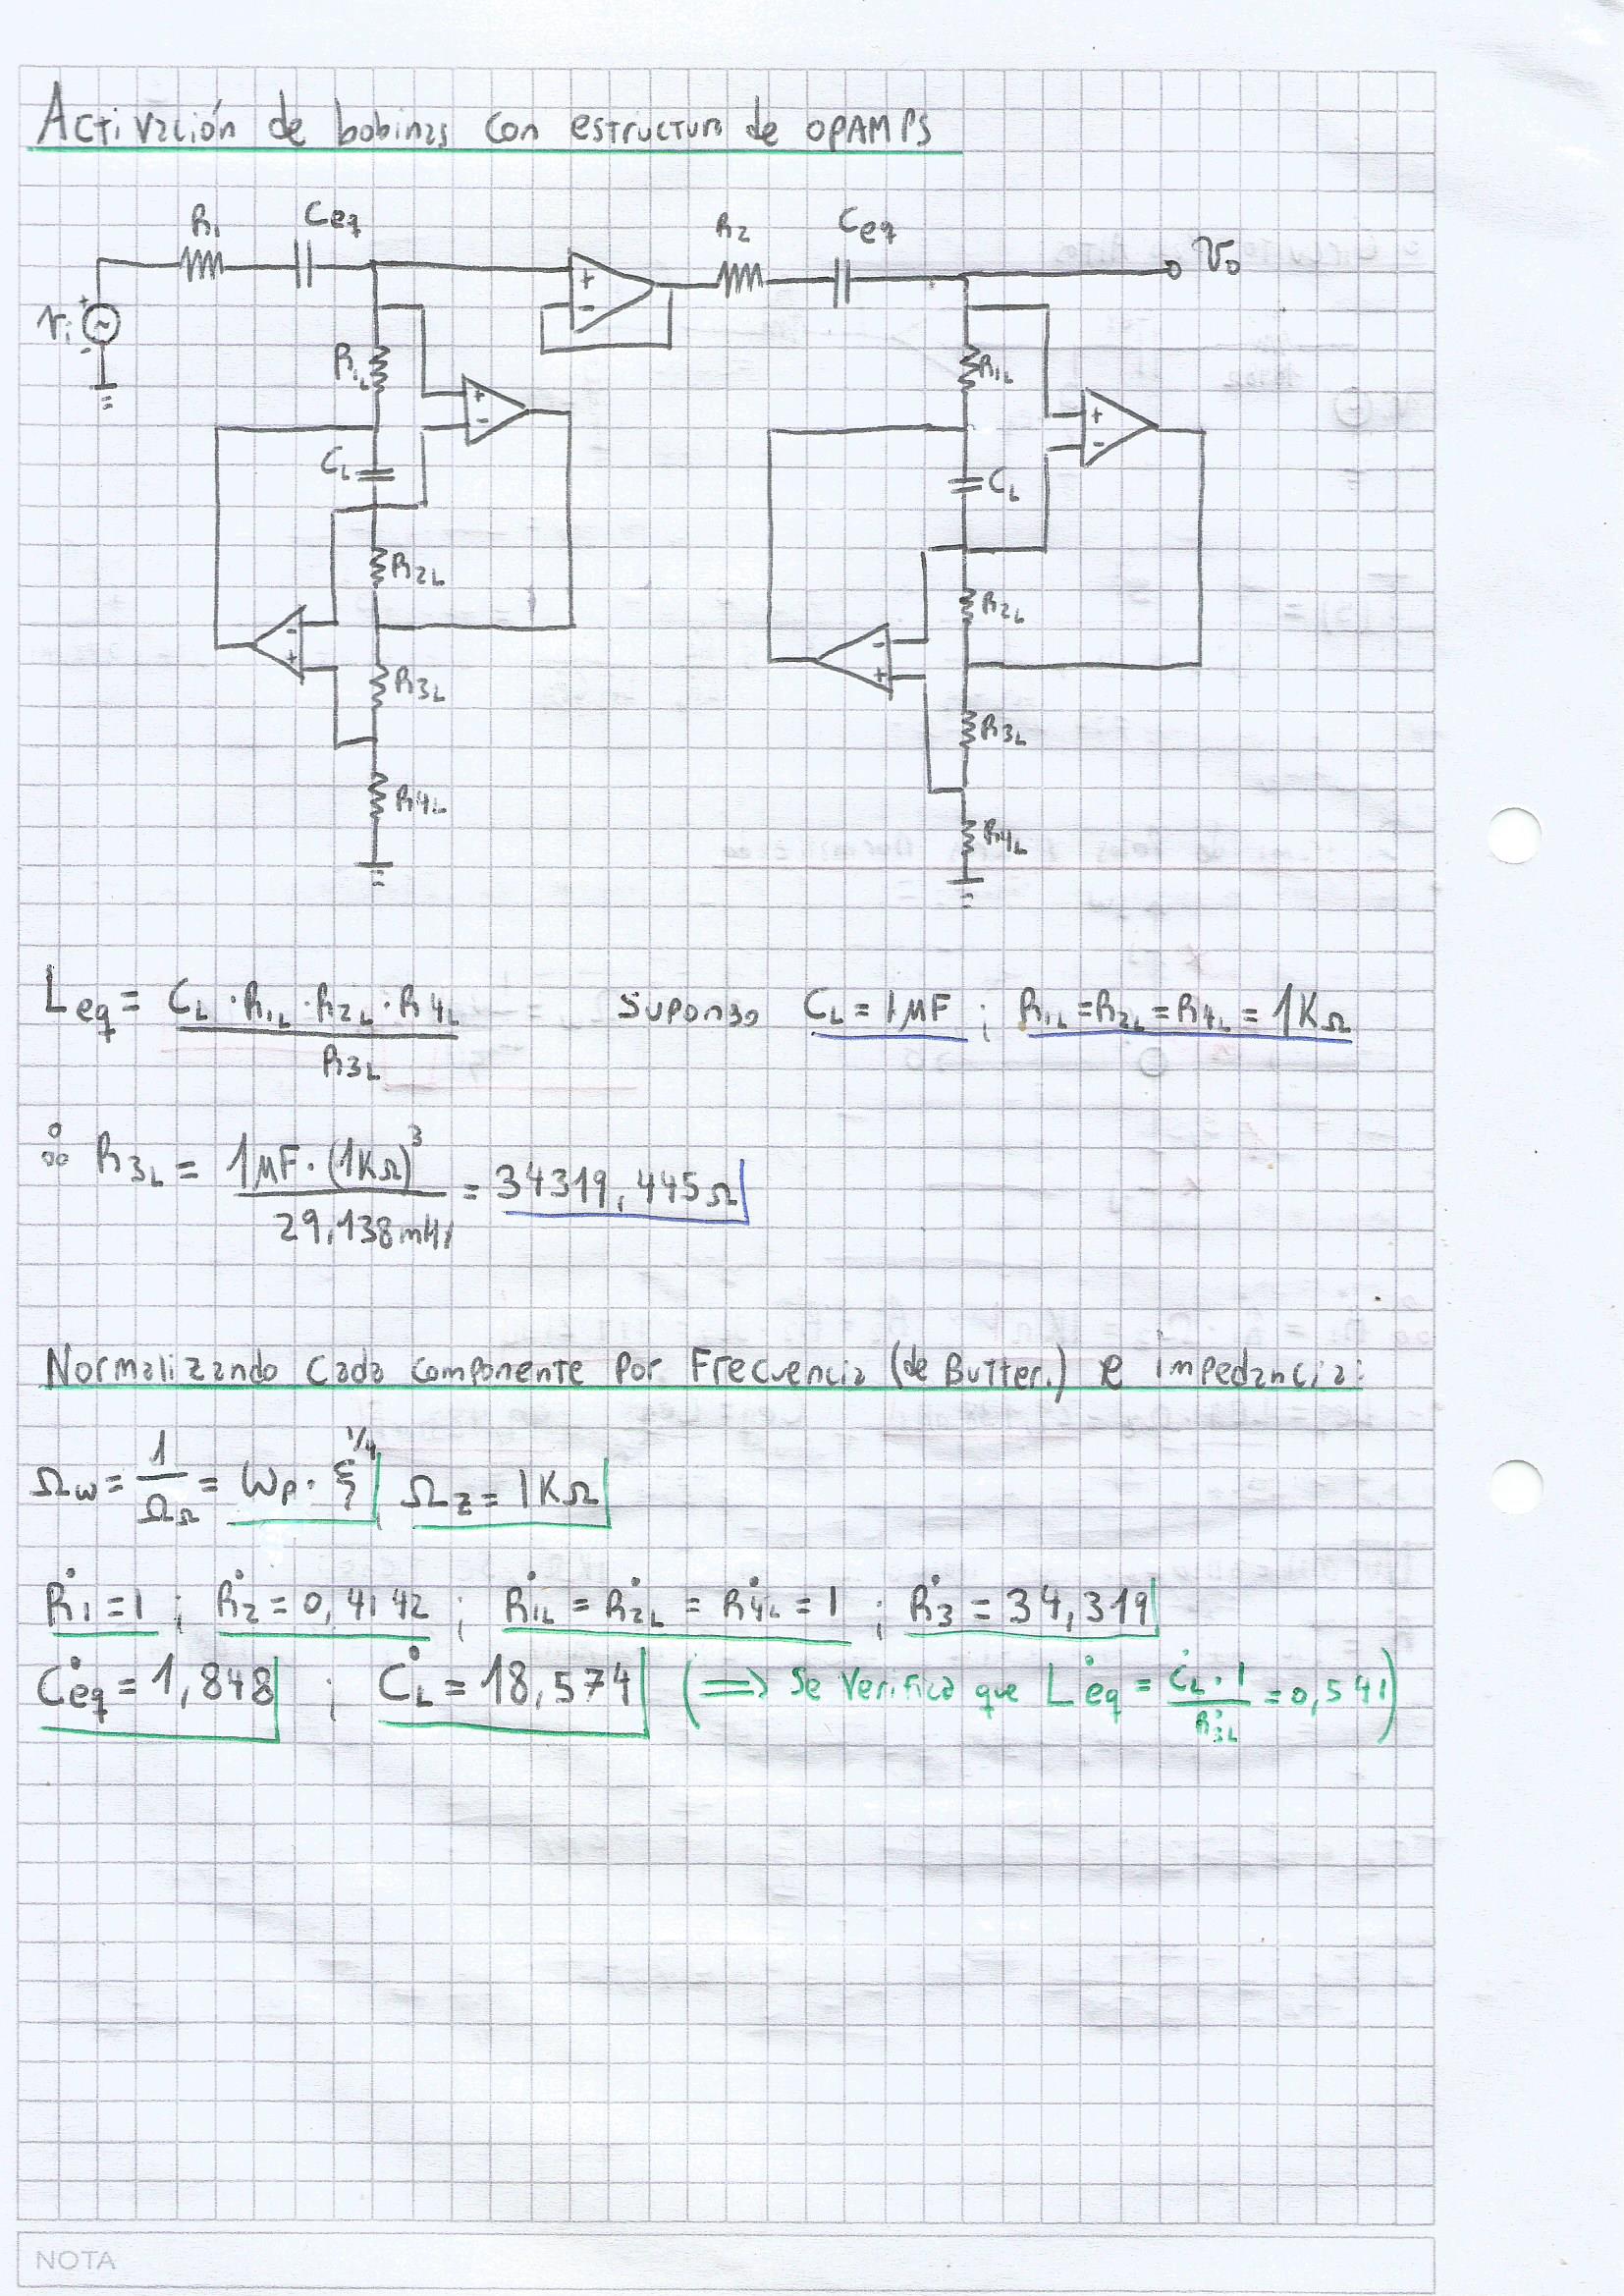 Activación de bobinas con estructura de OPAMPS
R1 Ceq R2 Ceq Vo
vi + -
R1L + - R1L
CL + - CL
R2L R2L
- + R3L - + R3L
R4L R4L
Leq = CL · R1L · R2L · R4L / R3L Supongo CL = 1μF ; R1L = R2L = R4L = 1KΩ
∴ R3L = 1μF · (1KΩ)³ / 29,138mHy = 34319,445Ω
Normalizando cada componente por Frecuencia (de Butter.) e impedancia:
Ωw = 1/ΩΩ = Wp · ξ^1/4 Ωz = 1KΩ
R1° = 1 ; R2° = 0,4142 ; R1L° = R2L° = R4L° = 1 ; R3° = 34,319
Ceq° = 1,848 ; CL° = 18,574 (⟹ Se verifica que Leq° = CL° · 1 / R3L° = 0,541)
NOTA